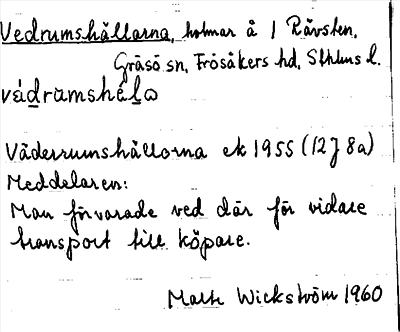 Vedrumshällarna, holmar å / Rävsten,
Gräsö sn, Frösåkers hd, Sthlms l.
Väderrumshällorna ek 1955 (12J 8a)
Meddelaren:
Man förvarade ved där för vidare
transport till köpare.
Wickström 1960